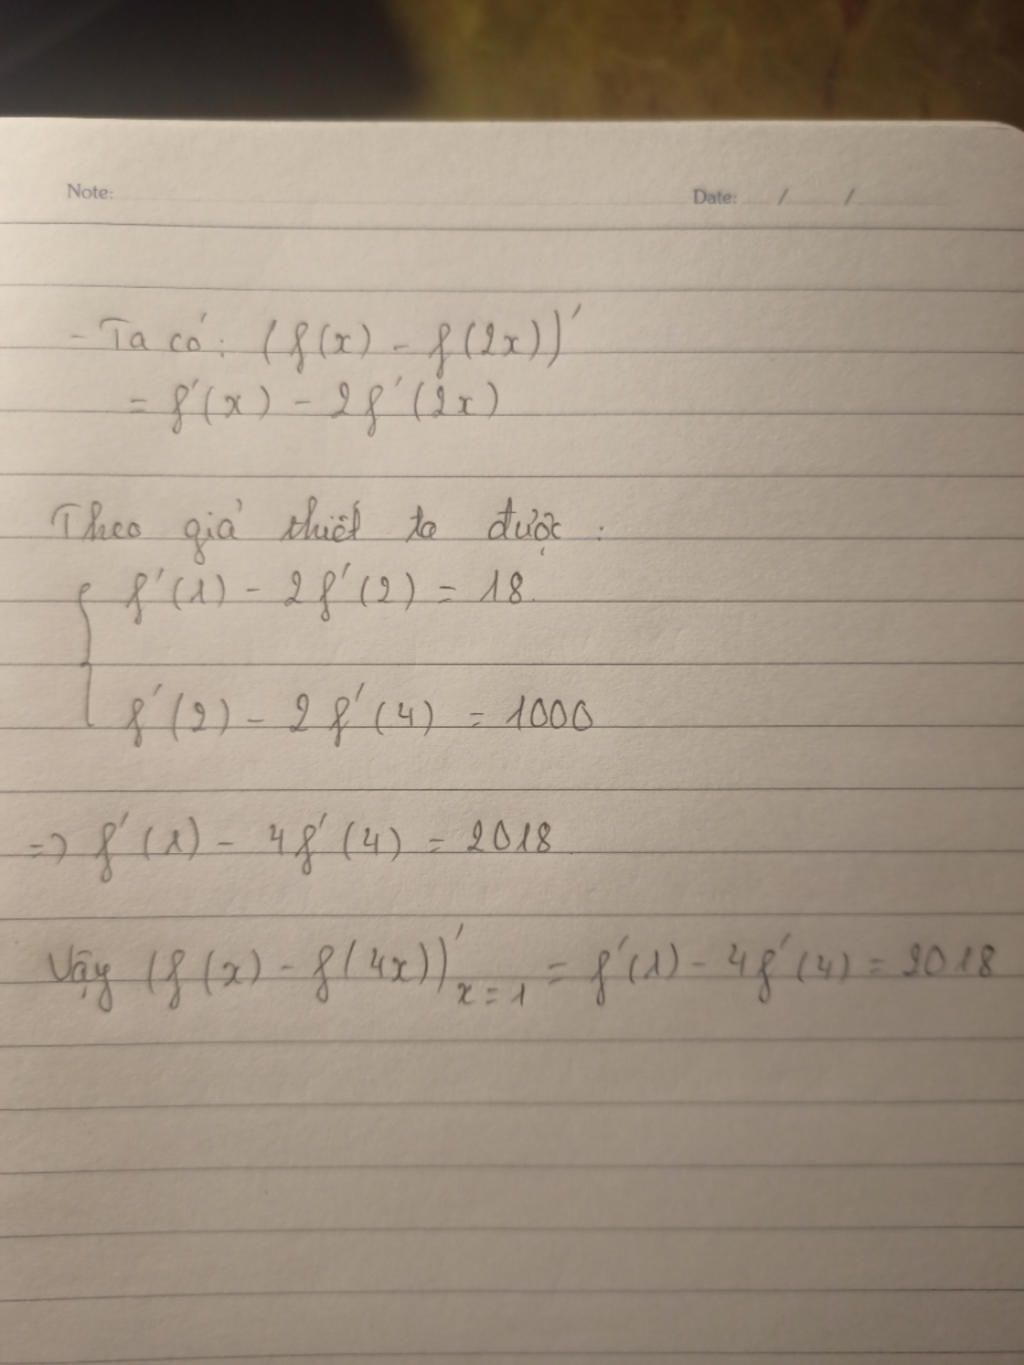 Note:
Date: / /
- Ta có: (f(x) - f(2x))'
= f'(x) - 2f'(2x)
Theo giả thiết ta được :
{ f'(1) - 2f'(2) = 18
f'(2) - 2f'(4) = 1000
=> f'(1) - 4f'(4) = 2018
Vậy (f(x) - f(4x))'x=1 = f'(1) - 4f'(4) = 2018